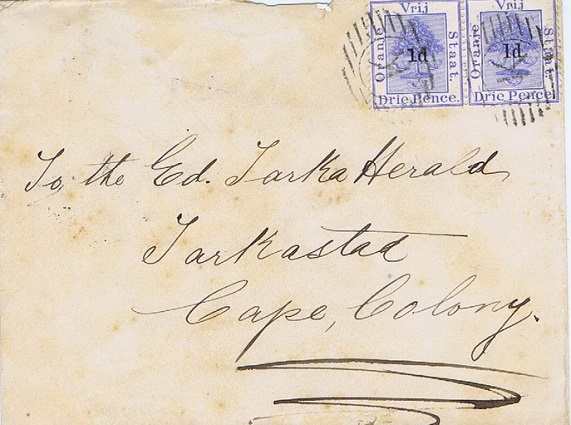 Vrij Vrij
Oranje 1d Staat. Oranje 1d Staat.
Drie Pence. Drie Pence.
To, the Ed. Tarka Herald
Tarkastad
Cape, Colony.